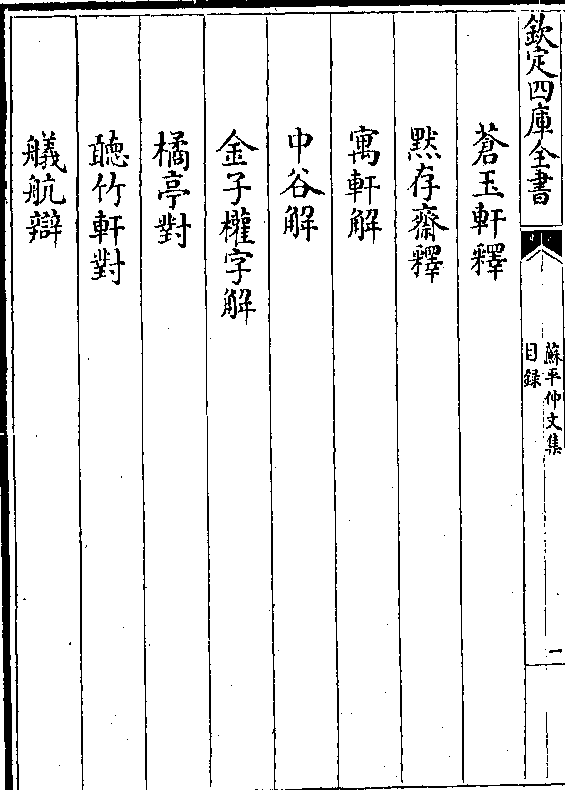 欽定四庫全書
蘇平仲文集
目録
二
蒼玉軒釋
黙存齋釋
寓軒解
中谷解
金子權字解
橘亭對
聽竹軒對
艤航辯